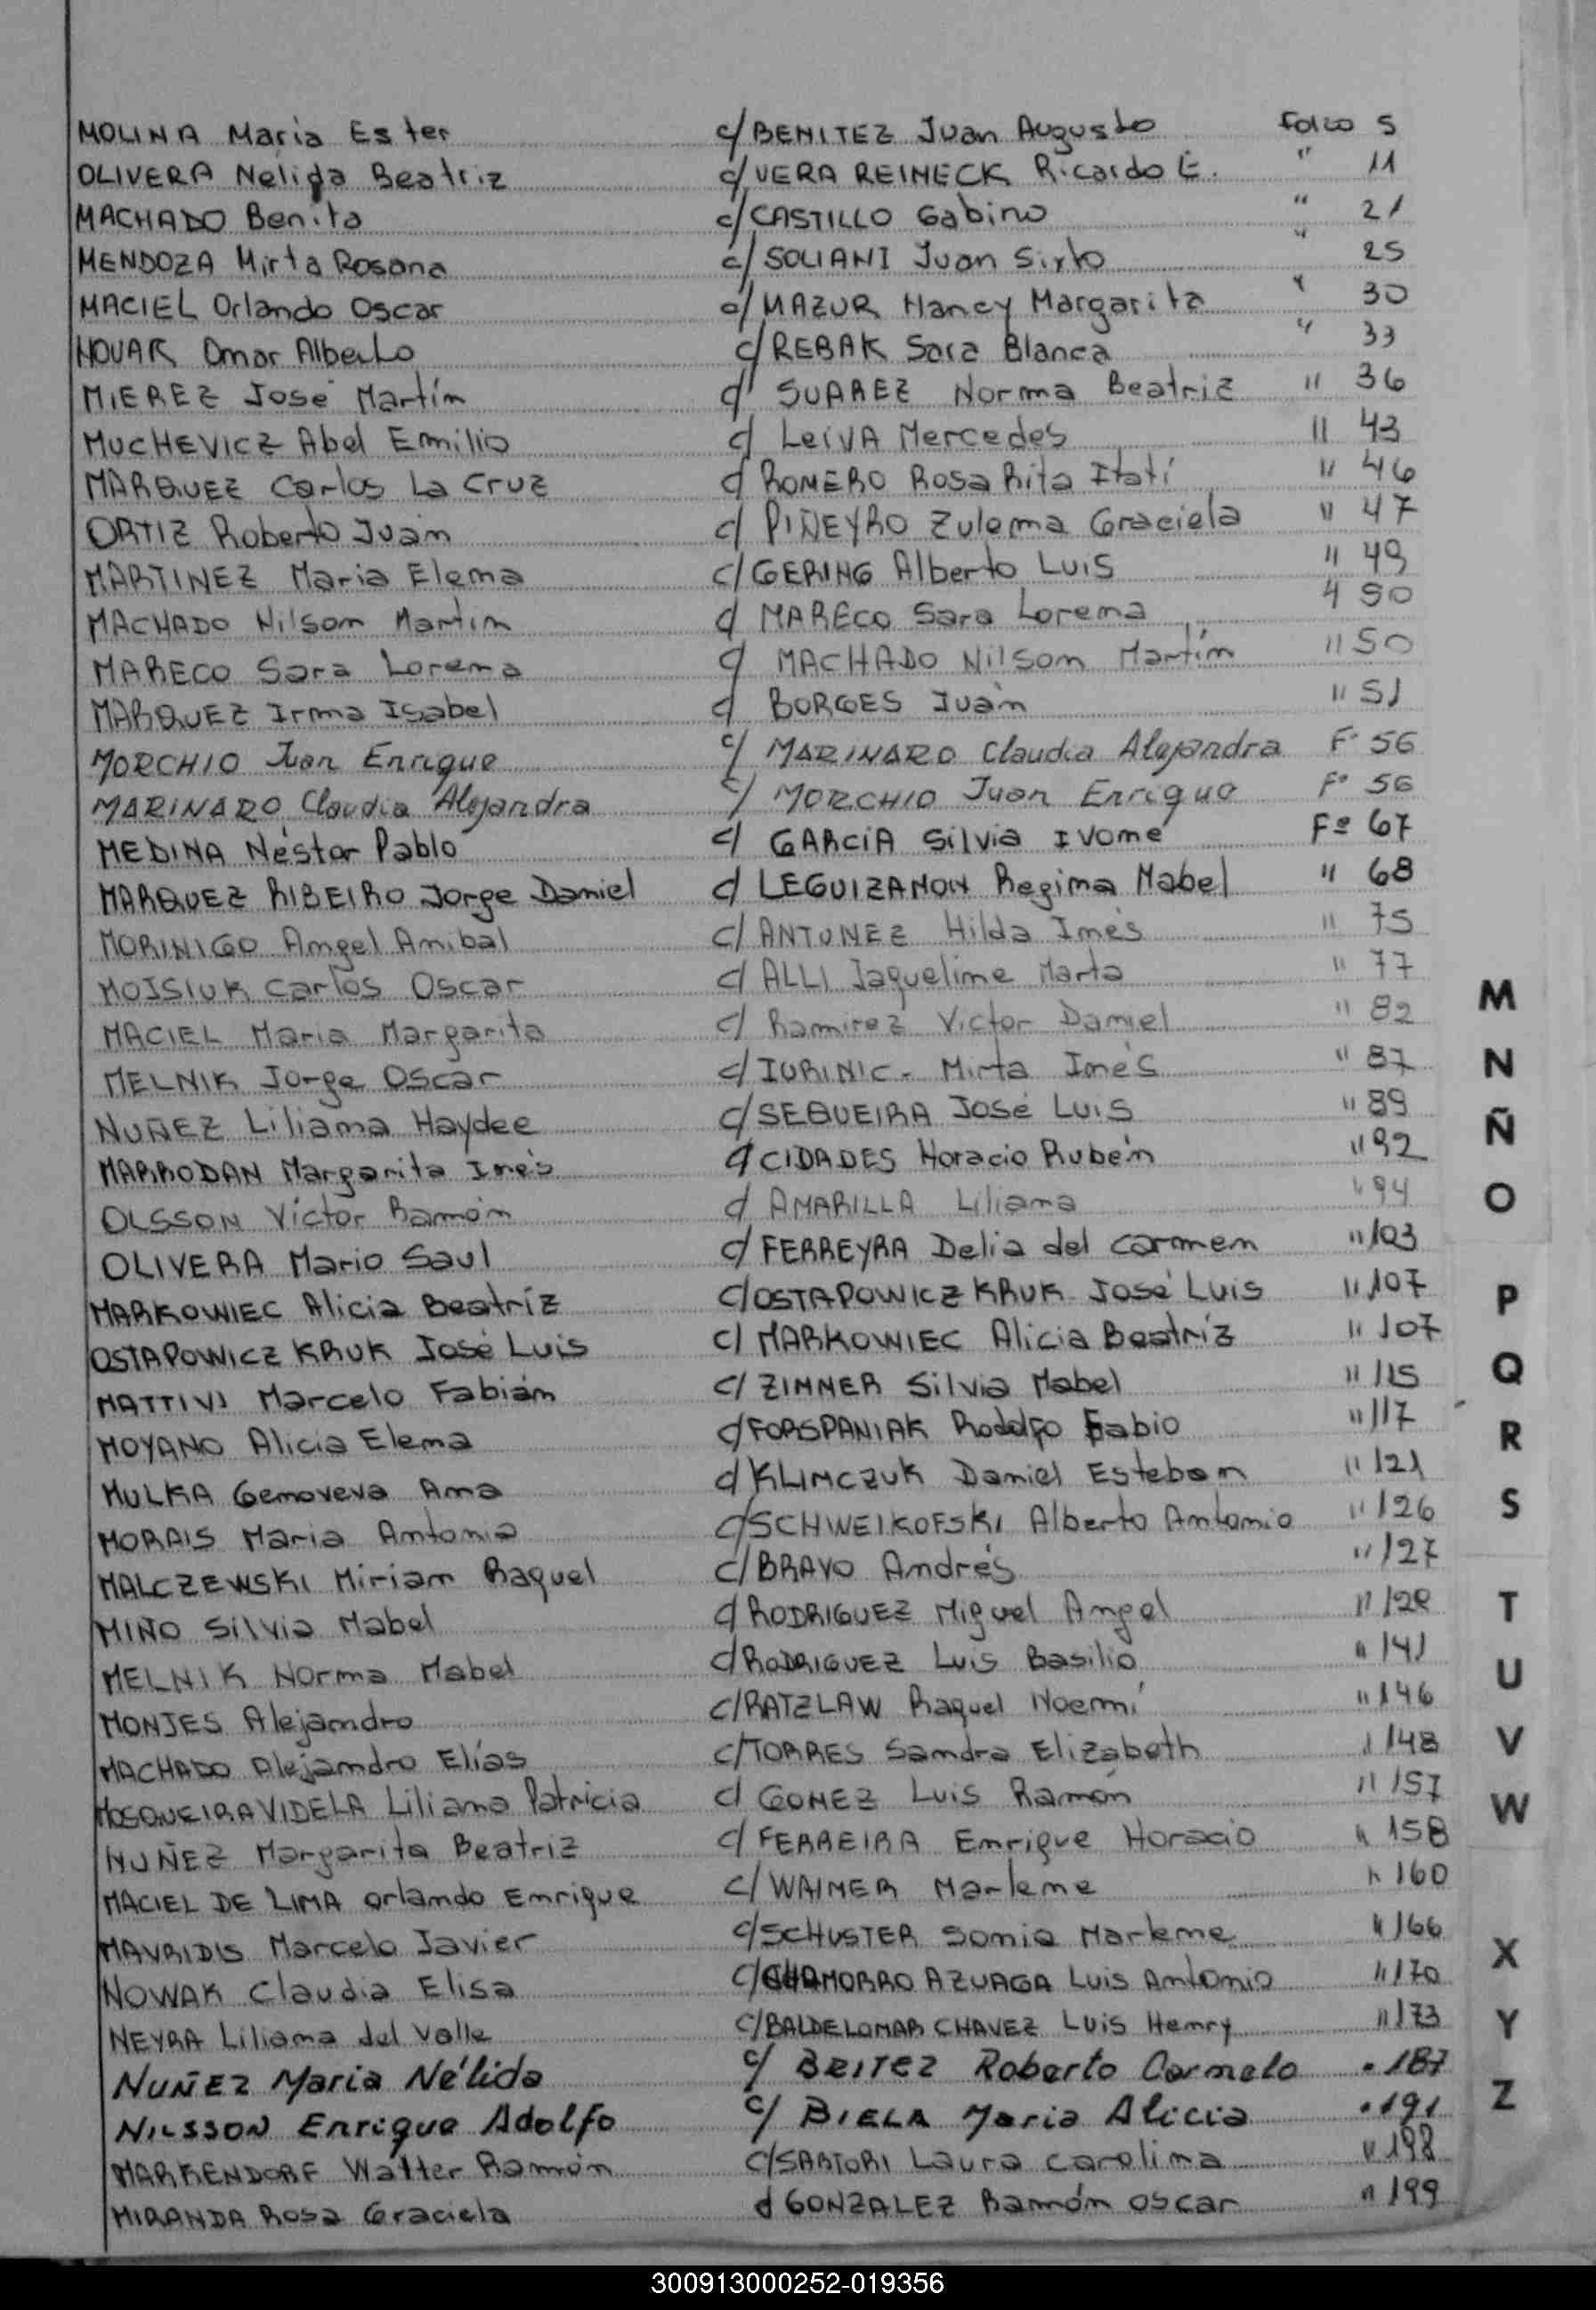 MOLINA Maria Ester c/ BENITEZ Juan Augusto Folio 5
OLIVERA Nelida Beatriz c/ VERA REINECK Ricardo E. " 11
MACHADO Benita c/ CASTILLO Gabino " 21
MENDOZA Mirta Rosana c/ SOLIANI Juan Sixto " 25
MACIEL Orlando Oscar c/ MAZUR Nancy Margarita " 30
NOVAR Omar Alberto c/ REBAK Sara Blanca " 33
MIEREZ José Martín c/ SUAREZ Norma Beatriz " 36
MUCHEVICZ Abel Emilio c/ LEIVA Mercedes " 43
MARQUEZ Carlos La Cruz c/ ROMERO Rosa Rita Itatí " 46
ORTIZ Roberto Juan c/ PIÑEYRO Zulema Graciela " 47
MARTINEZ Maria Elena c/ GERING Alberto Luis " 49
MACHADO Nilson Martin c/ MARECO Sara Lorena " 50
MARECO Sara Lorena c/ MACHADO Nilson Martín " 50
MARQUEZ Irma Isabel c/ BORGES Juan " 51
MORCHIO Juan Enrique c/ MARINARO Claudia Alejandra F° 56
MARINARO Claudia Alejandra c/ MORCHIO Juan Enrique F° 56
MEDINA Néstor Pablo c/ GARCIA Silvia Ivone Fº 67
MARQUEZ RIBEIRO Jorge Daniel c/ LEGUIZAMON Regina Mabel " 68
MORINIGO Angel Anibal c/ ANTUNEZ Hilda Inés " 75
MOJSIUK Carlos Oscar c/ ALLI Jaqueline Marta " 77
MACIEL Maria Margarita c/ Ramirez Victor Daniel " 82
MELNIK Jorge Oscar c/ IURINIC - Mirta Inés " 87
NUÑEZ Liliana Haydee c/ SEQUEIRA José Luis " 89
MARRODAN Margarita Inés c/ CIDADES Horacio Rubén " 92
OLSSON Víctor Ramón c/ AMARILLA Liliana " 94
OLIVERA Mario Saul c/ FERREYRA Delia del Carmen " 103
MARKOWIEC Alicia Beatríz c/ OSTAPOWICZ KRUK José Luis " 107
OSTAPOWICZ KRUK José Luis c/ MARKOWIEC Alicia Beatríz " 107
MATTIVI Marcelo Fabián c/ ZIMMER Silvia Mabel " 115
MOYANO Alicia Elena c/ FORSPANIAK Rodolfo Fabio " 117
MULKA Genoveva Ana c/ KLIMCZUK Daniel Esteban " 121
MORAIS Maria Antonia c/ SCHWEIKOFSKI Alberto Antonio " 126
MALCZEWSKI Miriam Raquel c/ BRAVO Andrés " 127
MIÑO Silvia Mabel c/ RODRIGUEZ Miguel Angel "
MELNIK Norma Mabel c/ RODRIGUEZ Luis Basilio " 141
MONJES Alejandro c/ RATZLAW Raquel Noemí " 146
MACHADO Alejandro Elías c/ TORRES Sandra Elizabeth " 148
MOSQUEIRA VIDELA Liliana Patricia c/ GOMEZ Luis Ramón " 157
NUÑEZ Margarita Beatriz c/ FERREIRA Enrique Horacio " 158
MACIEL DE LIMA Orlando Enrique c/ WAINER Marlene " 160
MAVRIDIS Marcelo Javier c/ SCHUSTER Sonia Marlene " 166
NOWAK Claudia Elisa c/ CHAMORRO AZUAGA Luis Antonio " 170
NEYRA Liliana del Valle c/ BALDELOMAR CHAVEZ Luis Henry " 173
NUÑEZ Maria Nélida c/ BRITEZ Roberto Carmelo " 187
NILSSON Enrique Adolfo c/ BIELA Maria Alicia " 191
MARKENDORF Walter Ramón c/ SARTORI Laura Carolina " 198
MIRANDA Rosa Graciela c/ GONZALEZ Ramón Oscar " 199
M
N
Ñ
O
P
Q
R
S
T
U
V
W
X
Y
Z
300913000252-019356